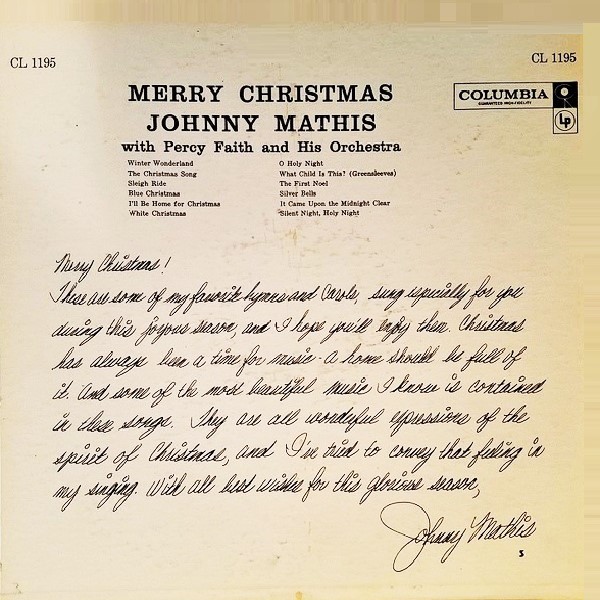 CL 1195
CL 1195
MERRY CHRISTMAS
JOHNNY MATHIS
with Percy Faith and His Orchestra
COLUMBIA
GUARANTEED HIGH-FIDELITY
Lp
Winter Wonderland
The Christmas Song
Sleigh Ride
Blue Christmas
I'll Be Home for Christmas
White Christmas
O Holy Night
What Child Is This? (Greensleeves)
The First Noel
Silver Bells
It Came Upon the Midnight Clear
Silent Night, Holy Night
Merry Christmas!
These are some of my favorite hymns and Carols, sung especially for you
during this joyous season, and I hope you'll enjoy them. Christmas
has always been a time for music - a home should be full of
it. And some of the most beautiful music I know is contained
in these songs. They are all wonderful expressions of the
spirit of Christmas, and I've tried to convey that feeling in
my singing. With all best wishes for this glorious season,
Johnny Mathis
S